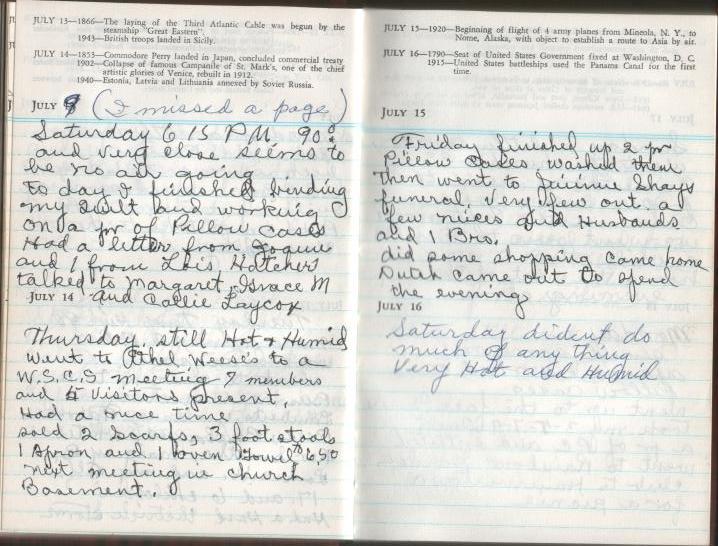 JULY 13—1866—The laying of the Third Atlantic Cable was begun by the
steamship "Great Eastern".
1943—British troops landed in Sicily.
JULY 14—1853—Commodore Perry landed in Japan, concluded commercial treaty
1902—Collapse of famous Campanile of St. Mark's, one of the chief
artistic glories of Venice, rebuilt in 1912.
1940—Estonia, Latvia and Lithuania annexed by Soviet Russia.
JULY 9 (I missed a page)
Saturday 6 15 P.M. 90°
and very close seems to
be no air going
to day I finished binding
my quilt and working
on a pr of Pillow cases
Had a letter from Joann
and 1 from Lois Hatcher
talked to Margaret, Grace M
JULY 14 and Callie Laycox
Thursday, still Hot & Humid
went to Ethel Weese's to a
W.S.C.S meeting 7 members
and 4 Visitors present.
Had a nice time
sold 2 scarfs, 3 foot stools
1 Apron and 1 oven Towel 6.50
next meeting in church
Basement.
JULY 15—1920—Beginning of flight of 4 army planes from Mineola, N. Y., to
Nome, Alaska, with object to establish a route to Asia by air.
JULY 16—1790—Seat of United States Government fixed at Washington, D. C.
1915—United States battleships used the Panama Canal for the first
time.
JULY 15
Friday finished up 2 pr
Pillow Cases washed them
Then went to Jimmie Shays
funeral. Very few out. a
few nieces and Husbands
and 1 Bro.
did some shopping came home
Dutch came out to spend
the evening
JULY 16
Saturday dident do
much of any thing
Very Hot and Humid